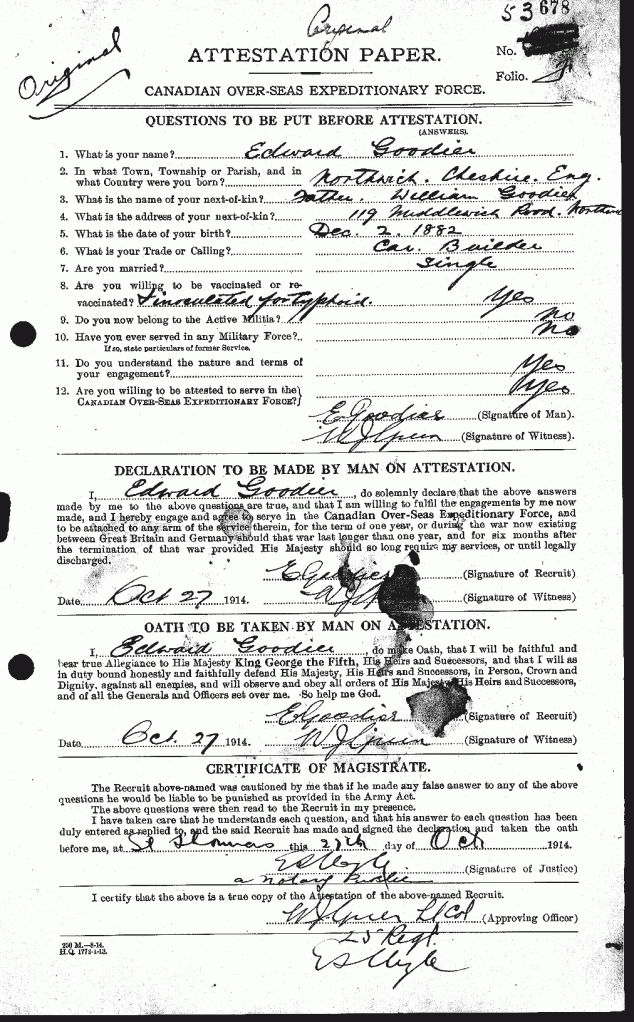 Original
53678
Original
ATTESTATION PAPER.
No.
Folio.
CANADIAN OVER-SEAS EXPEDITIONARY FORCE.
QUESTIONS TO BE PUT BEFORE ATTESTATION.
(ANSWERS).
1. What is your name? Edward Goodier
2. In what Town, Township or Parish, and in
what Country were you born? Northwich. Cheshire, Eng.
3. What is the name of your next-of-kin? Father. William Goodier
4. What is the address of your next-of-kin? 119 Middlewich Road. Northwich
5. What is the date of your birth? Dec. 2. 1882
6. What is your Trade or Calling? Car. Builder
7. Are you married? Single
8. Are you willing to be vaccinated or re-
vaccinated? & inoculated for typhoid. Yes
9. Do you now belong to the Active Militia? No
10. Have you ever served in any Military Force? No
If so, state particulars of former Service.
11. Do you understand the nature and terms of
your engagement? Yes
12. Are you willing to be attested to serve in the
CANADIAN OVER-SEAS EXPEDITIONARY FORCE? Yes
E Goodier (Signature of Man).
(Signature of Witness).
DECLARATION TO BE MADE BY MAN ON ATTESTATION.
I, Edward Goodier, do solemnly declare that the above answers
made by me to the above questions are true, and that I am willing to fulfil the engagements by me now
made, and I hereby engage and agree to serve in the Canadian Over-Seas Expeditionary Force, and
to be attached to any arm of the service therein, for the term of one year, or during the war now existing
between Great Britain and Germany should that war last longer than one year, and for six months after
the termination of that war provided His Majesty should so long require my services, or until legally
discharged.
E Goodier (Signature of Recruit)
Date Oct 27 1914. (Signature of Witness)
OATH TO BE TAKEN BY MAN ON ATTESTATION.
I, Edward Goodier, do make Oath, that I will be faithful and
bear true Allegiance to His Majesty King George the Fifth, His Heirs and Successors, and that I will as
in duty bound honestly and faithfully defend His Majesty, His Heirs and Successors, in Person, Crown and
Dignity, against all enemies, and will observe and obey all orders of His Majesty, His Heirs and Successors,
and of all the Generals and Officers set over me. So help me God.
E Goodier (Signature of Recruit)
Date Oct. 27 1914. (Signature of Witness)
CERTIFICATE OF MAGISTRATE.
The Recruit above-named was cautioned by me that if he made any false answer to any of the above
questions he would be liable to be punished as provided in the Army Act.
The above questions were then read to the Recruit in my presence.
I have taken care that he understands each question, and that his answer to each question has been
duly entered as replied to, and the said Recruit has made and signed the declaration and taken the oath
before me, at St Thomas this 27th day of Oct 1914.
(Signature of Justice)
a Notary Public
I certify that the above is a true copy of the Attestation of the above-named Recruit.
Lt Col (Approving Officer)
25 Regt.
200 M.—8-14.
H.Q. 1772-1-13.